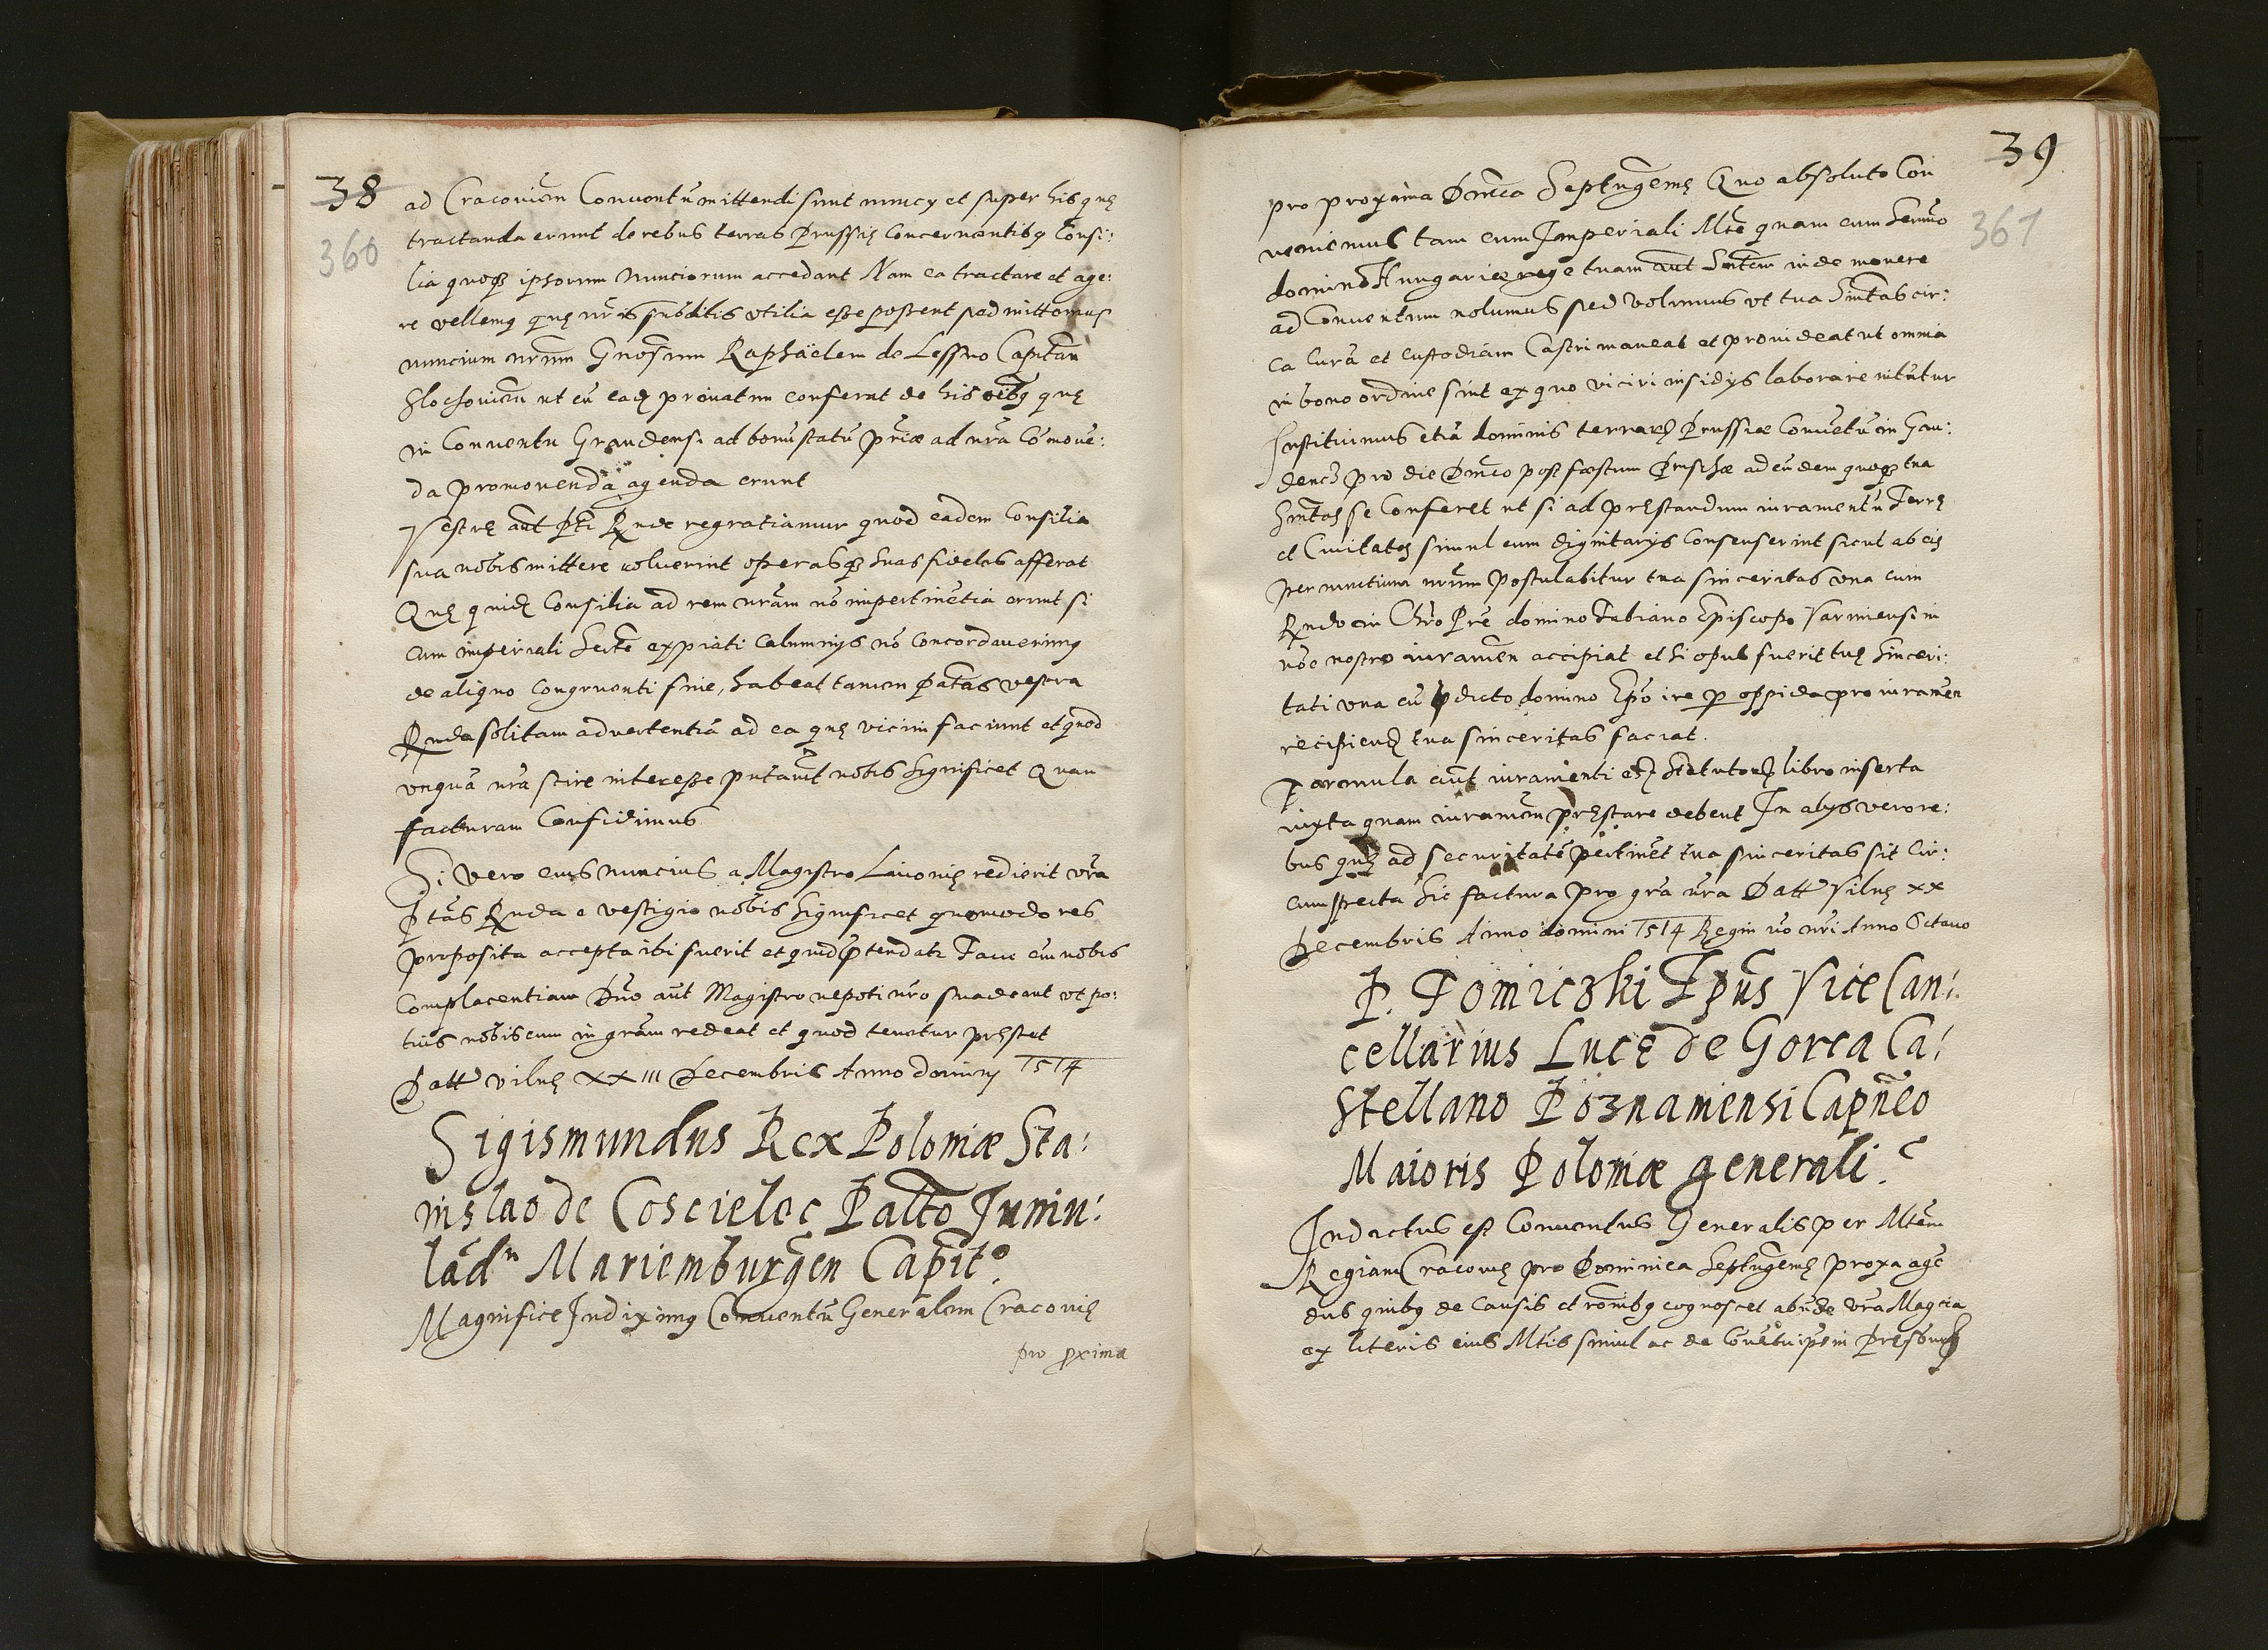 38
360
ad Cracovien Conventu mittendi sunt nuncy et super his quę
tractanda erunt de rebus terras Prussię Concernentibq Consi:
lia quoqз ipsorum Nunciorum accedant Nam ea tractare et age:
re vellemq quę nris subditis utilia esse possent sed mittemus
nuncium nrum Gnosum Raphäelem de Lessno Capitan
Slochovien ut cu ead privatim conferat de his oibq quę
in Conventu Graudensi ad bonu statu priæ ad nra Co move:
da promovenda agenda erunt
Vestrę aut Pti Rnde regratiamur quod eadem Consilia
sua nobis mittere voluerint operasqз suas fideles afferat
Quę quid Consilia ad rem nram no impertinetia erunt si
cum imperiali Secte expiati Calumnijs no Concordaverimq
de aliquo congruenti fine, habeat tamen Patas vestra
Rnda solitam advertentia ad ea quę vicini faciunt et quod
unqua nra scire interesse putavit nobis significet Quam
facturam Confidimus
Si vero eius nuncius a Magistro Livonię redierit vra
Ptas Rnda e vestigio nobis significet quomodo res
proposita accepta ibi fuerit et quid ptendatr Faciet em nobis
Complacentiam Dno aut Magistro nepoti nro suadeant ut po:
tius nobiscum in gram redeat et quod tenetur pręstet
Datt vilnę XXIII Decembris Anno dominj 1514
Sigismundus Rex Poloniæ Sta:
nislao de Coscielec Palto Juniu:
lad^n Mariemburgen Capit^o.
Magnifice Indiximq Conventu Generalem Cracovię
pro pxima
39
361
pro proxima Dnica Septuagemę Quo absoluto Con
veniemus tam cum Imperiali Mte quam cum Sermo
domino Hungariæ rege tuam aut Sintem inde movere
ad Conventum nolumus sed volumus ut tua Sintas cir:
ca Cura et Custodiam Castri maneat et provideat ut omnia
in bono ordine sint ex quo vicini insidijs laborare nitutur
Instituimus etia dominis terrarę Prussiæ Conuetu in Gau:
dencз pro die Dnico post fæstum Circucisæ ad eundem quoqз tua
Sintas se Conferet ut si ad pręstandum iuramentu Terrę
et Civitates simul cum dignitarijs Consenserint sicut ab eis
per nunctium nrum postulabitur tua sinceritas una cum
Rndo in Chro Pre domino Fabiano Episcopo Varmiensi in
noe nostro iuramen accipiat et si opus fuerit tuę Sinceri:
tati una cu pdicto domino Epo ire p oppida pro iuramen
recipiend tua sinceritas faciat.
Formula aut iuramenti est Statutorę libro inserta
iuxta quam iuramem pręstare debent In alys vero re:
bus quę ad securitate pertinet tua sinceritas sit Cir:
cumspecta sic factura pro gra nra Datt vilnę XX
Decembris Anno domini 1514 Regni vo nri Anno Octavo
P. Tomiczki Epus Vice Can:
cellarius Lucę de Gorca Ca:
stellano Poznaniensi Capneo
Maioris Poloniæ generali.
Indictus est Conventus Generalis per Mtem
Regiam Cracovię pro Dominica Septugemę proxa age
dus quibq de Causis et ronibq cognoscet abude vra Mag cia
ex literis eius Mtis simul ac de Covetu ipsm Pressburg